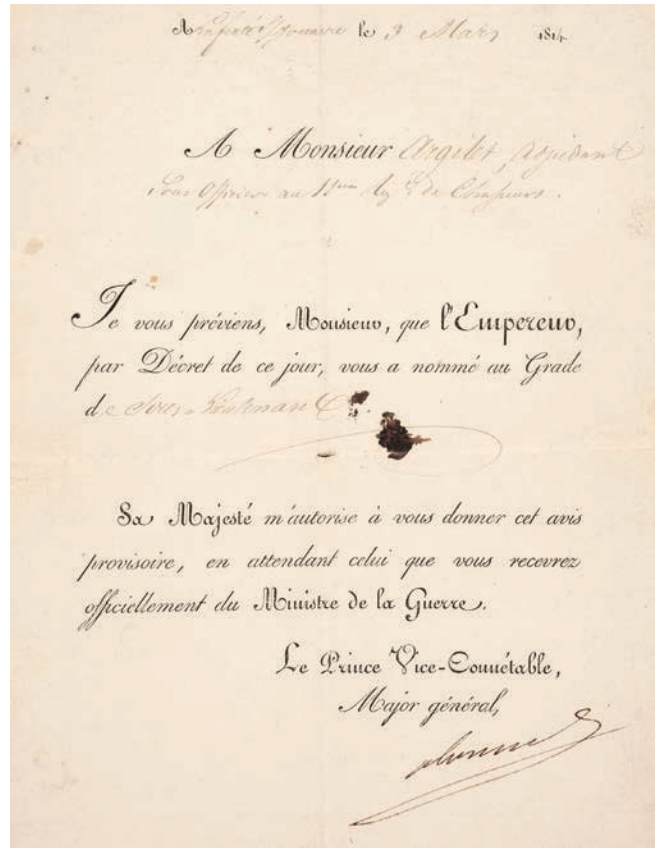 A la ferté s/ Jouarre le 3 Mars 1814
A Monsieur Argilet, adjudant
Sous Officier au 11eme de Chasseurs.
Je vous préviens, Monsieur, que l'Empereur,
par Décret de ce jour, vous a nommé au Grade
de Sous-Lieutenant
Sa Majesté m'autorise à vous donner cet avis
provisoire, en attendant celui que vous recevrez
officiellement du Ministre de la Guerre.
Le Prince Vice-Connétable,
Major général,